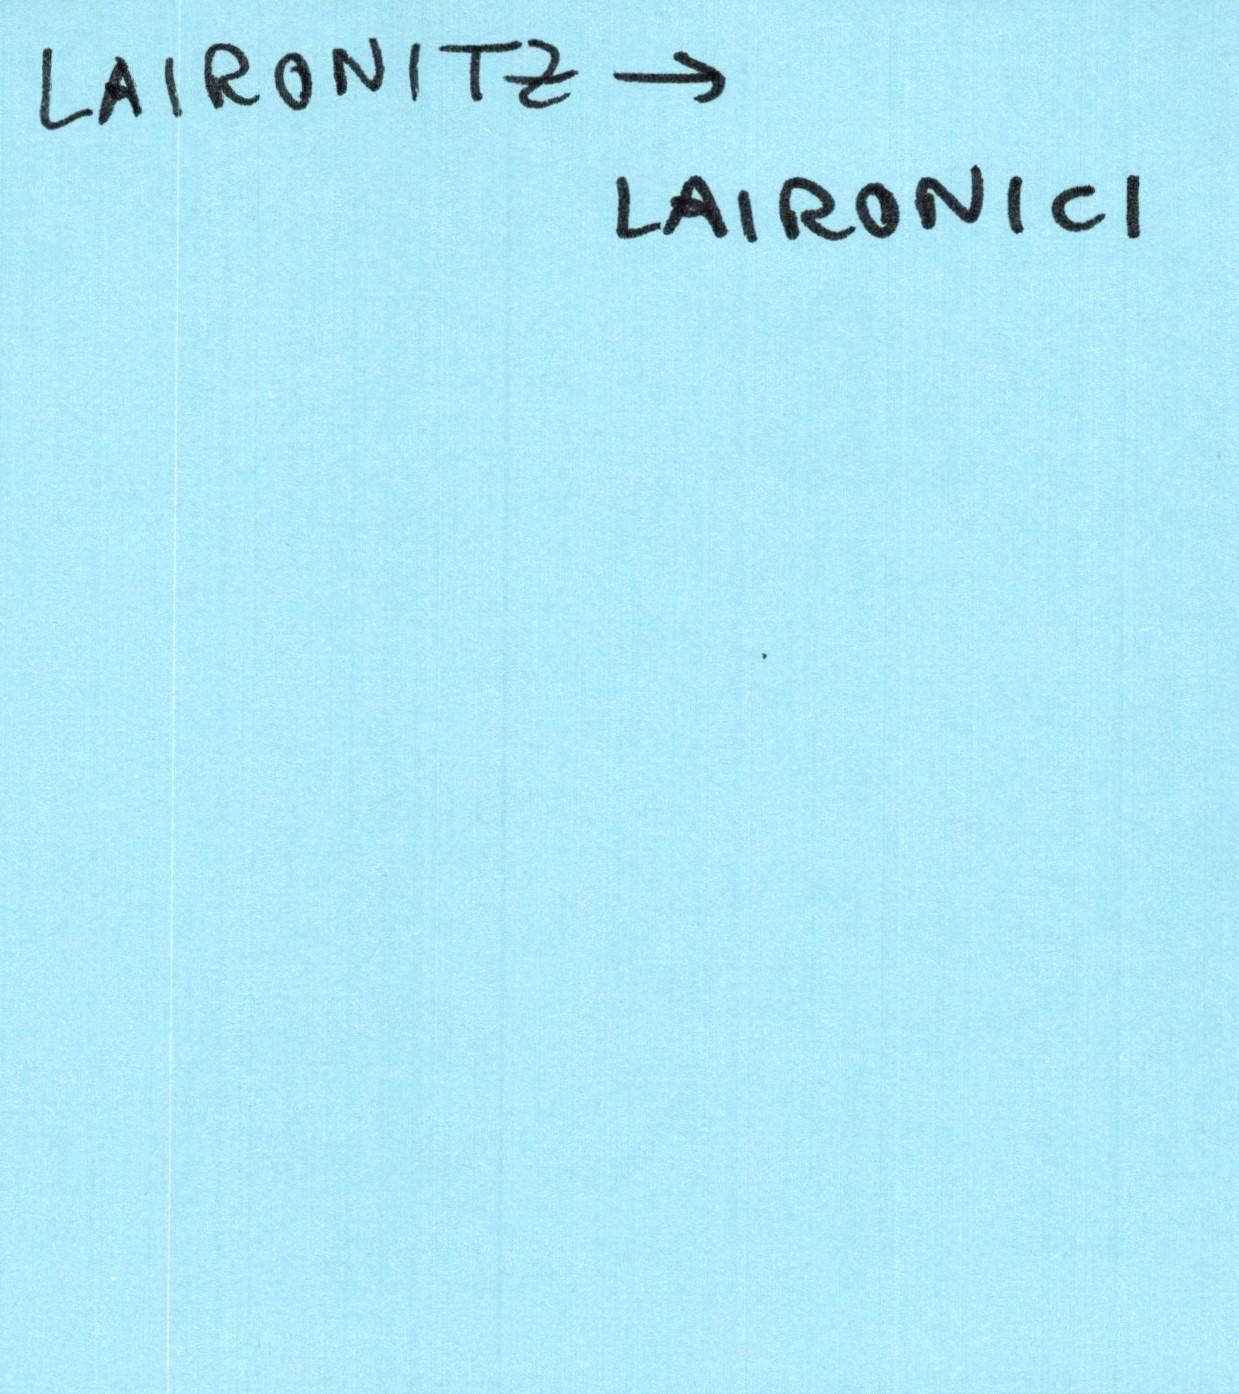 LAIRONITZ →
LAIRONICI